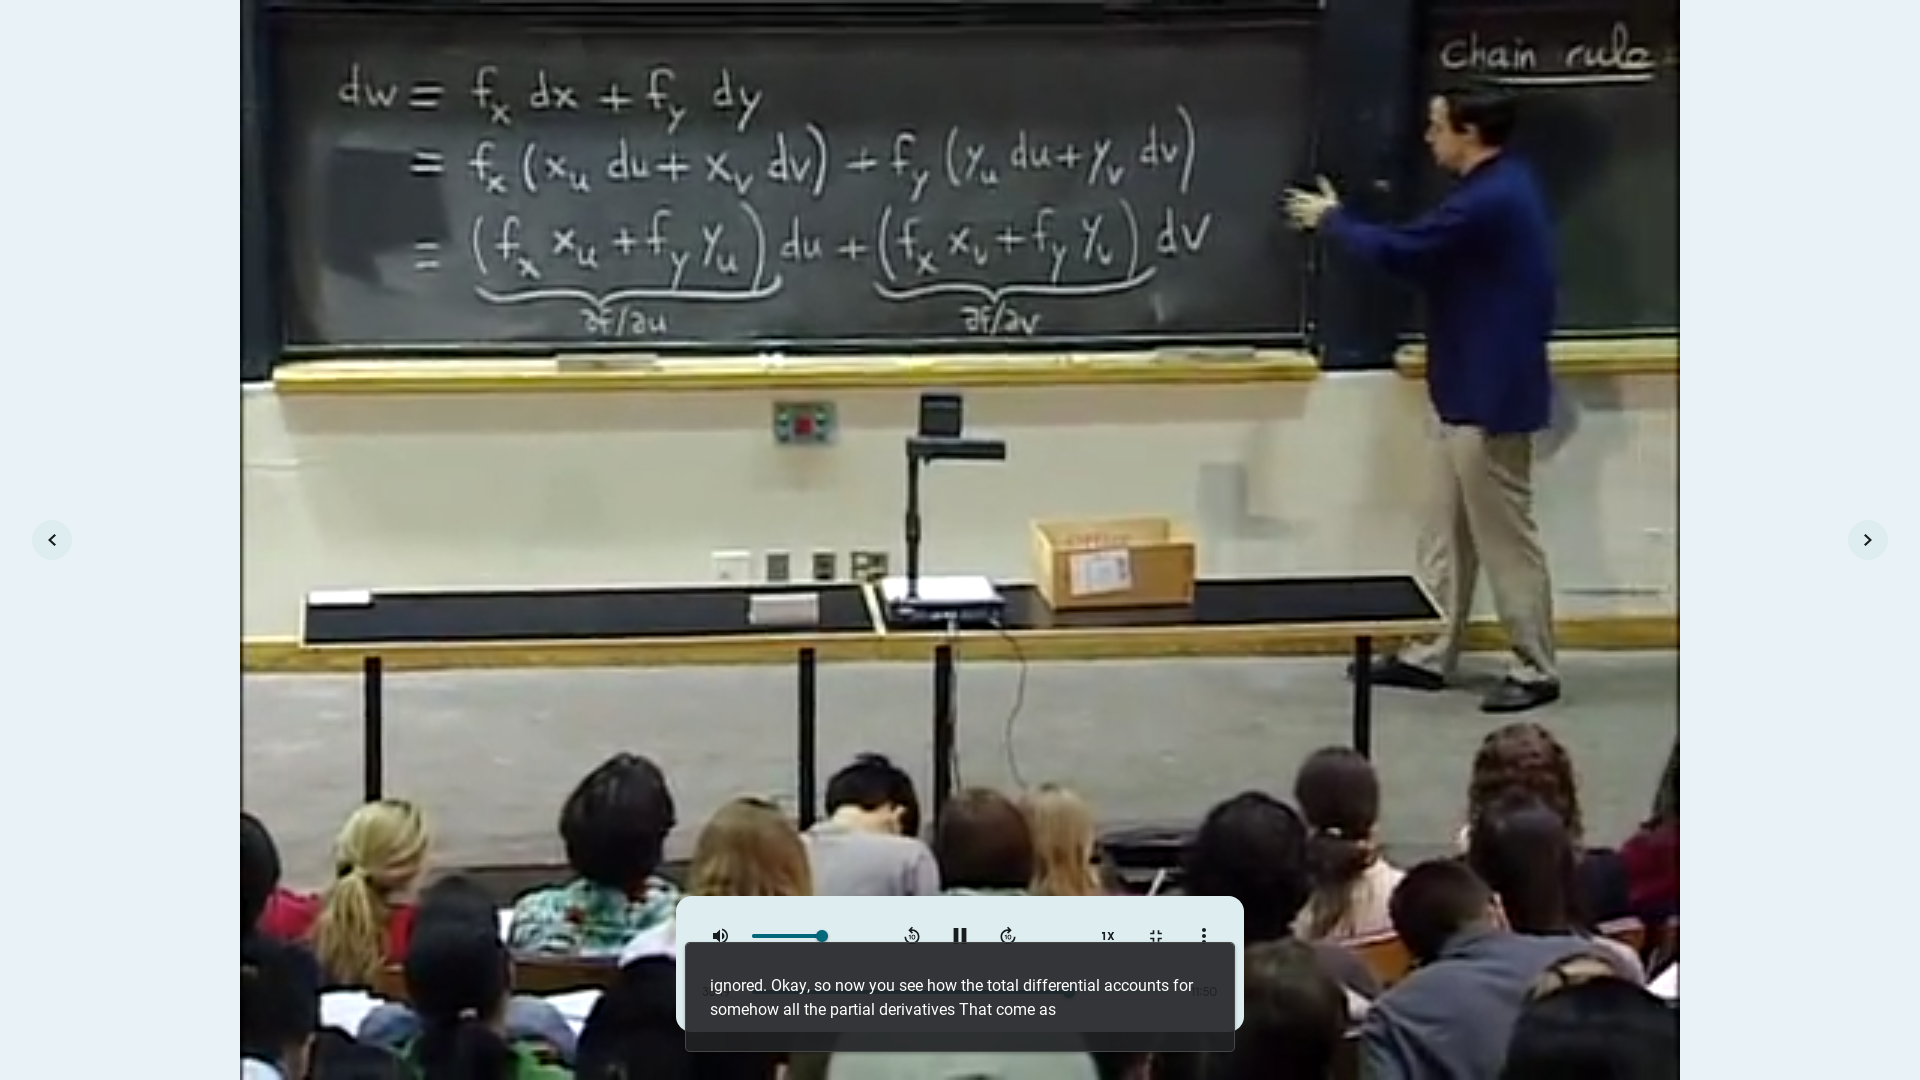 Chain rule
dw = f_x dx + f_y dy
= f_x (x_u du + x_v dv) + f_y (y_u du + y_v dv)
= (f_x x_u + f_y y_u) du + (f_x x_v + f_y y_v) dv
∂f/∂u ∂f/∂v
Office
10
10
1X
ignored. Okay, so now you see how the total differential accounts for
somehow all the partial derivatives That come as